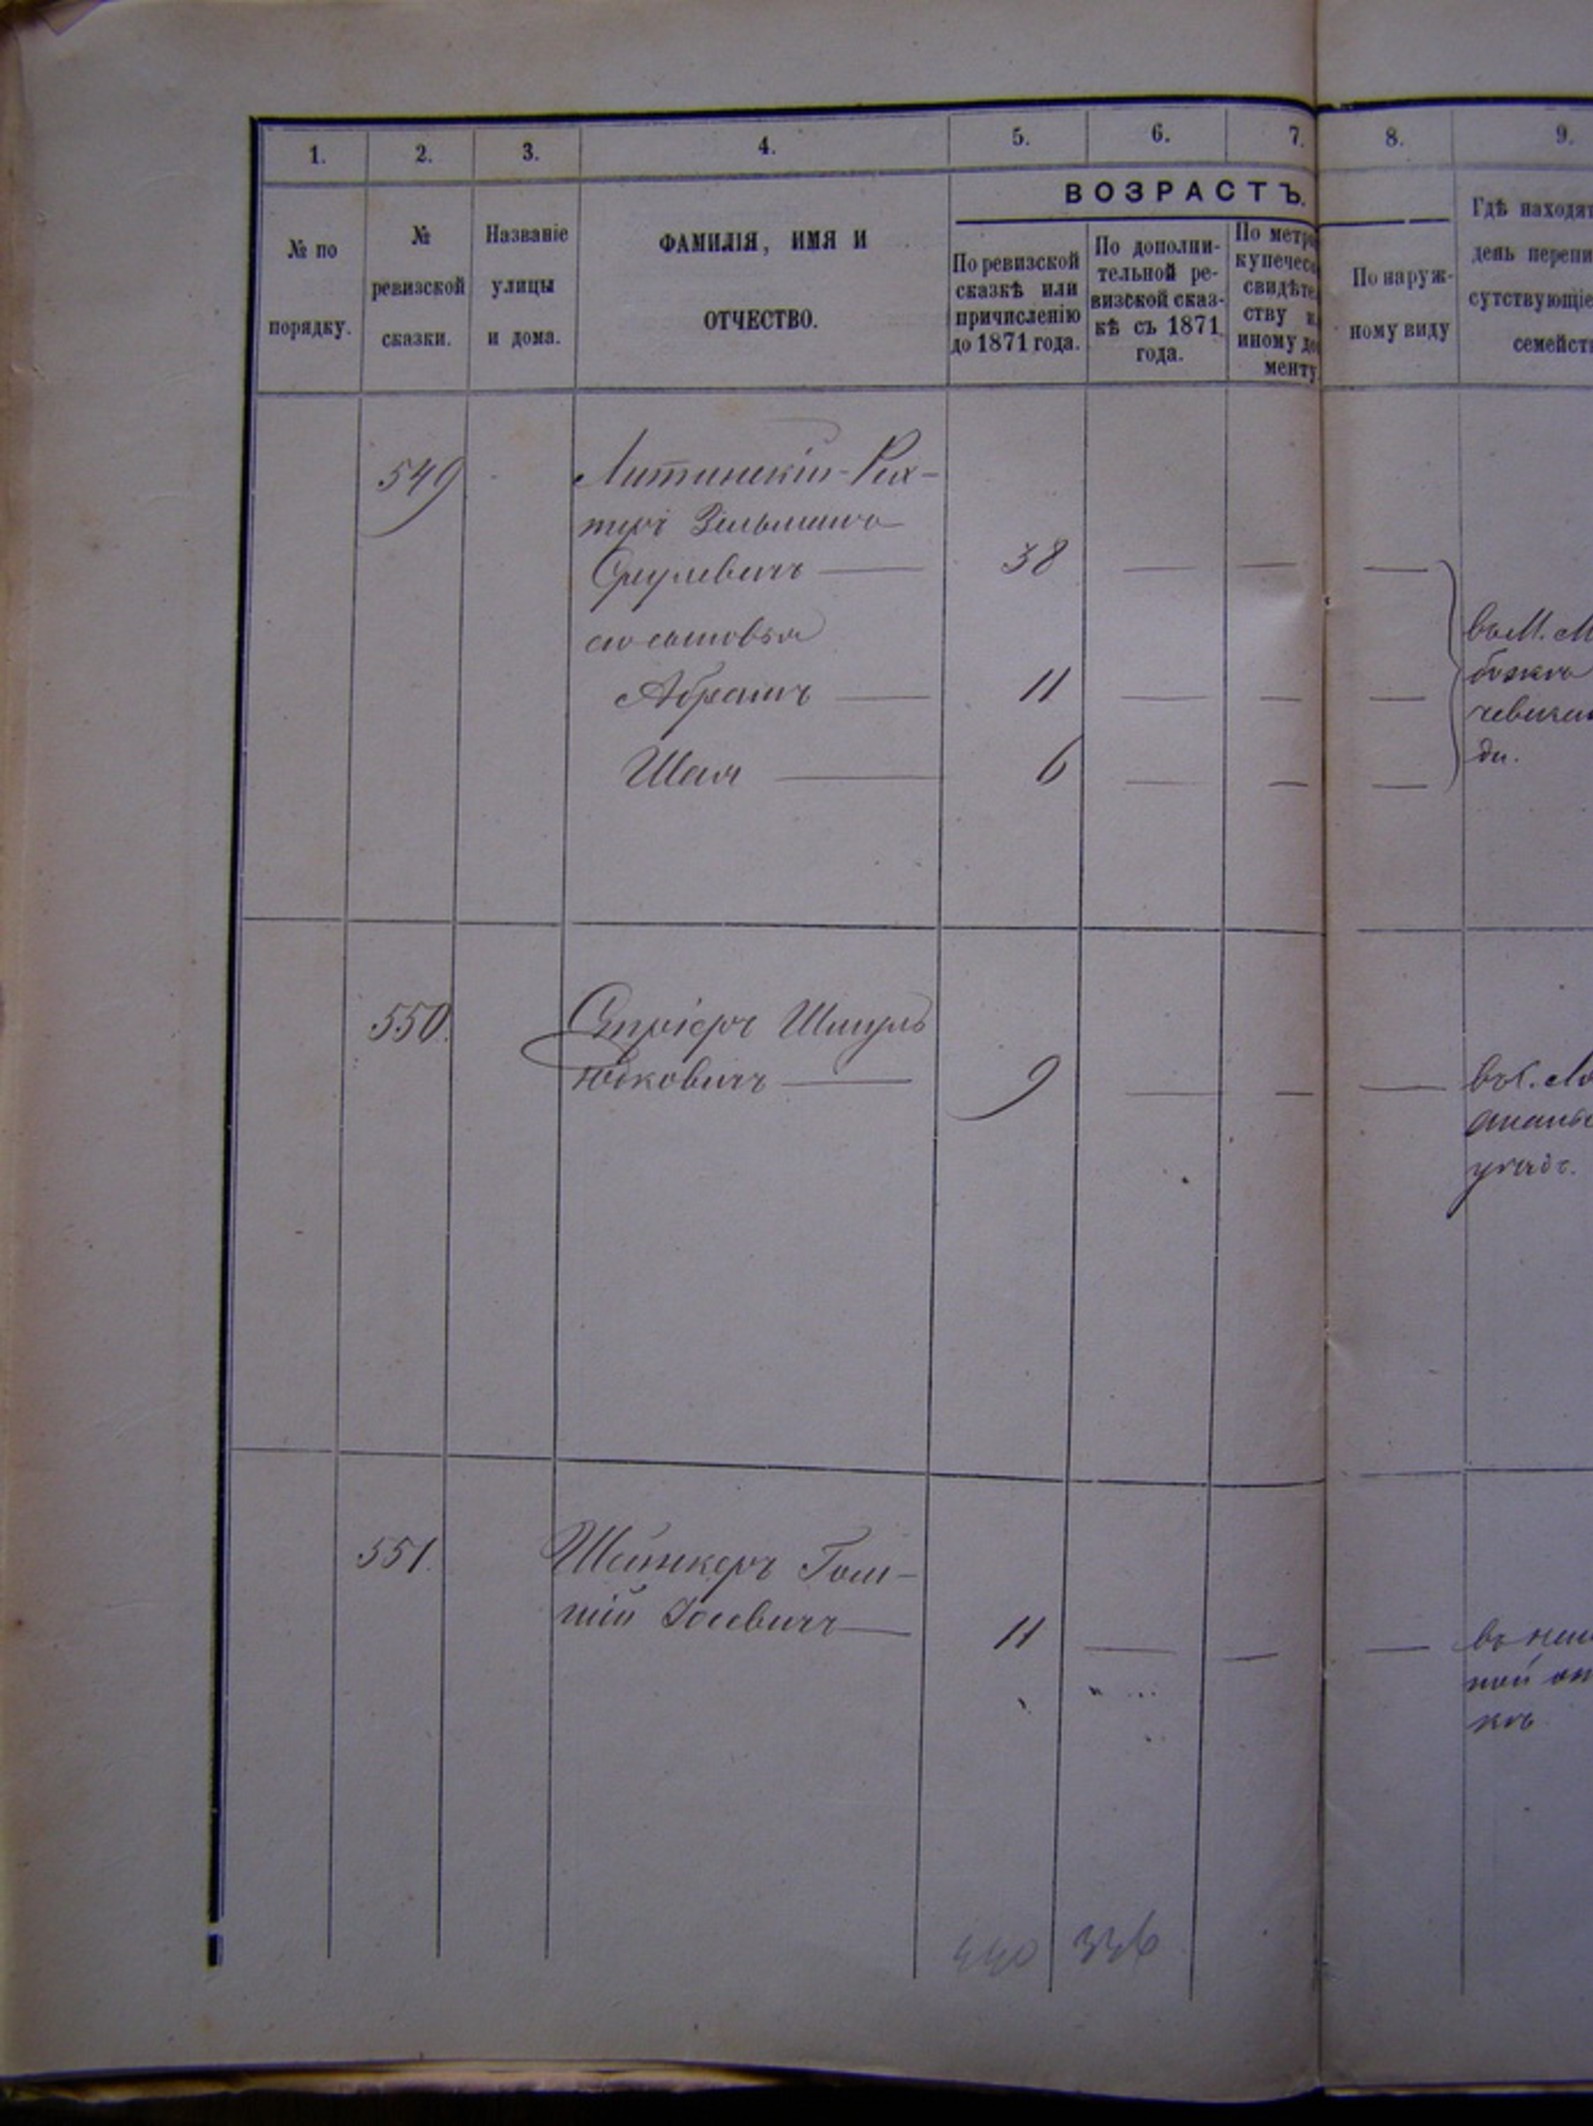 1. 2. 3. 4. 5. 6. 7. 8. 9.
ВОЗРАСТЪ.
№ по
порядку.
№
ревизской
сказки.
Названіе
улицы
и дома.
ФАМИЛІЯ, ИМЯ И
ОТЧЕСТВО.
По ревизской
сказкѣ или
причисленію
до 1871 года.
По дополни-
тельной ре-
визской сказ-
кѣ съ 1871
года.
По метр
купечес
свидѣте
ству и
иному до
менту
По наруж-
ному виду
Гдѣ находят
день перепи
сутствующіе
семейст
549 Литинскій-Рех-
теръ Зельманъ
Срулевичъ — 38 — — —
его сыновья
Абрамъ — 11 — — —
Шая — 6 — — —
въ М. М
божъ
чевскаг
ди.
550. Стріеръ Шмуль
Юдковичъ — 9 — — —
въ С.
ананье
уѣздѣ.
551. Шейнкеръ Гом-
Іосевичъ — 11 — — —
въ
ной
къ
336